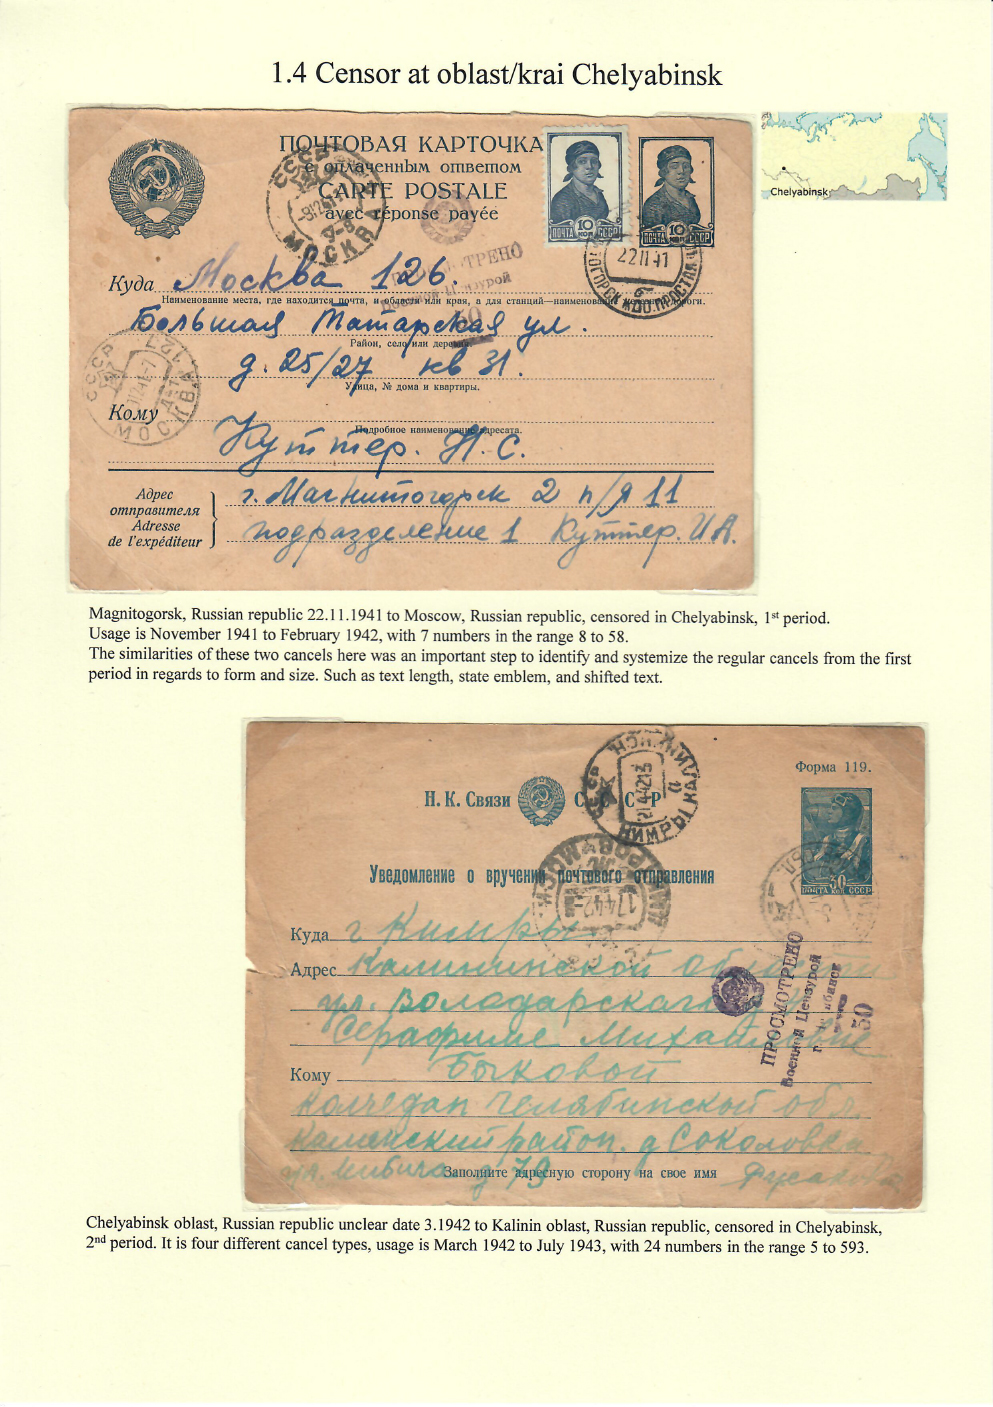 1.4 Censor at oblast/krai Chelyabinsk
Chelyabinsk
ПОЧТОВАЯ КАРТОЧКА
с оплаченным ответом
CARTE POSTALE
avec réponse payée
СССР
МОСКВА
10 КОП
ПОЧТА СССР
10 КОП
ПОЧТА СССР
22 11 41
Куда Москва 126.
Наименование места, где находится почта, и области или края, а для станций—наименование железной дороги.
Большая Татарская ул.
Район, село или деревня.
д. 25/27 кв 31.
Улица, № дома и квартиры.
СССР
МОСКВА
Кому
Подробное наименование адресата.
Куттер. Н. С.
Адрес отправителя
Adresse de l'expéditeur
г. Магнитогорск 2 п/я 11
подразделение 1 Куттер. И А.
Magnitogorsk, Russian republic 22.11.1941 to Moscow, Russian republic, censored in Chelyabinsk, 1st period.
Usage is November 1941 to February 1942, with 7 numbers in the range 8 to 58.
The similarities of these two cancels here was an important step to identify and systemize the regular cancels from the first
period in regards to form and size. Such as text length, state emblem, and shifted text.
Форма 119.
Н. К. Связи С С С Р
Уведомление о вручении почтового отправления
30
ПОЧТА СССР
Куда г Кимры
Адрес Калининской области
ул. Володарского
Серафиме Михайловне
Кому Быковой
Колчедан Челябинской обл.
Каменский район. д Соколовка
д 79
Заполните адресную сторону на свое имя
ПРОСМОТРЕНО
Военной Цензурой
50
Chelyabinsk oblast, Russian republic unclear date 3.1942 to Kalinin oblast, Russian republic, censored in Chelyabinsk,
2nd period. It is four different cancel types, usage is March 1942 to July 1943, with 24 numbers in the range 5 to 593.